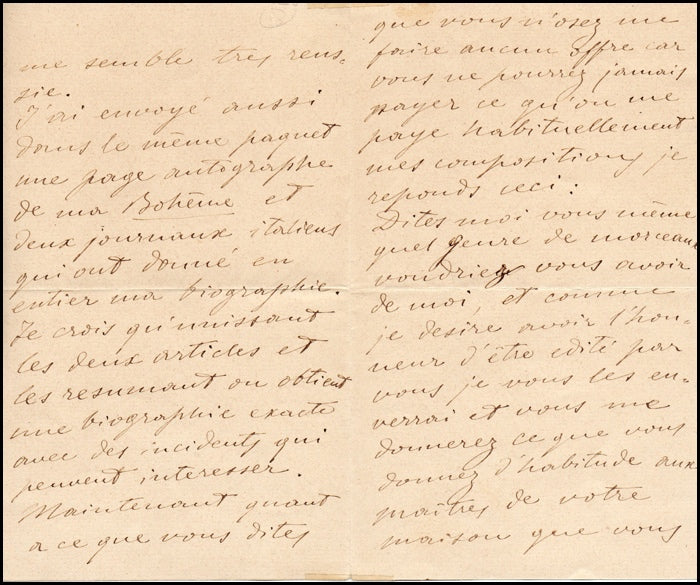 me semble tres reus-
sie.
J'ai envoyé aussi
dans le même paquet
une page autographe
de ma Bohême et
deux journaux italiens
qui ont donné en
entier ma biographie.
Je crois qu'unissant
les deux articles et
les resumant on obtient
une biographie exacte
avec des incidents qui
peuvent interesser.
Maintenant quant
a ce que vous dites
que vous n'osez me
faire aucun offre car
vous ne pourrez jamais
payer ce qu'on me
paye habituellement
mes compositions je
reponds ceci :
Dites moi vous même
quel genre de morceaux
voudriez vous avoir
de moi, et comme
je desire avoir l'hon-
neur d'être edité par
vous je vous les en-
verrai et vous me
donnerez ce que vous
donnez d'habitude aux
maîtres de votre
maison que vous